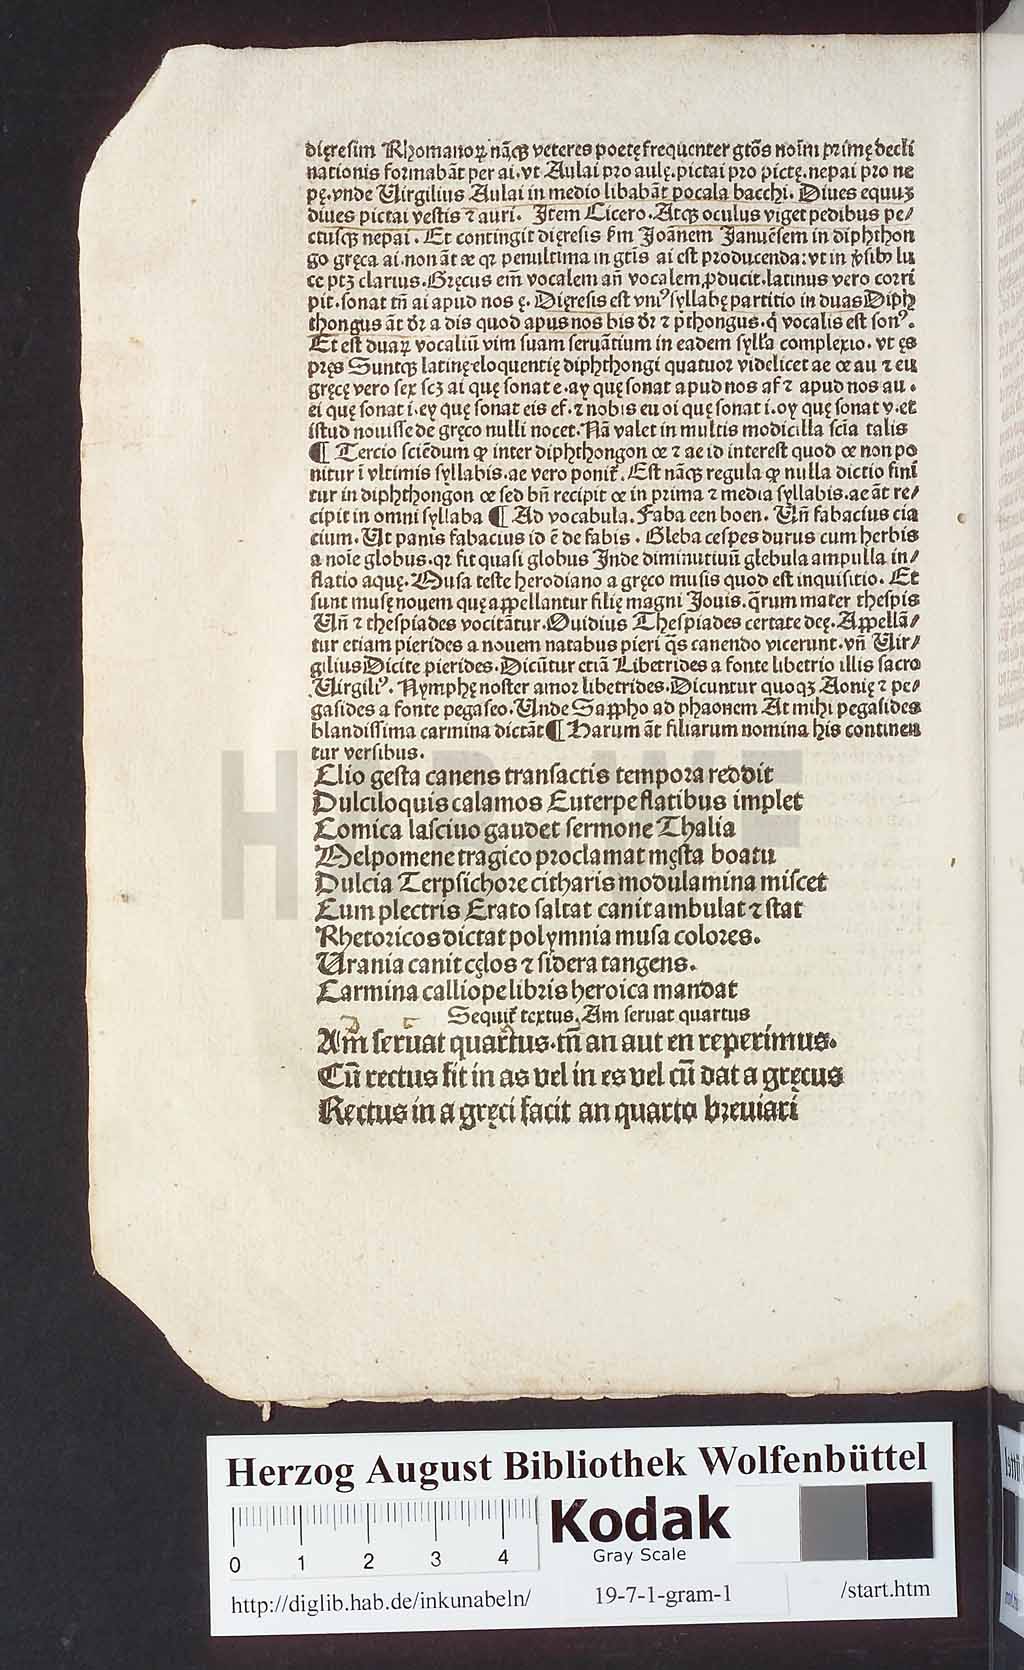 dięresim Rhomanoꝝ nãqꝫ veteres poetę frequenter gtõs noĩm primę decli
nationis formabãt per ai. vt Aulai pro aulę. pictai pro pictę. nepai pro ne
pę. vnde Uirgilius Aulai in medio libabãt pocala bacchi. Diues equuʒ
diues pictai vestis ⁊ auri. Item Cicero. Atqꝫ oculus viget pedibus pe/
ctusqꝫ nepai. Et contingit dięresis km̃ Joãnem Januẽsem in diphthon
go gręca ai. non ãt æ qꝛ penultima in gtis ai est producenda: vt in
ce ptʒ clarius. Gręcus eĩm vocalem añ vocalem ꝓducit. latinus vero corri
pit. sonat tñ ai apud nos ę. Dięresis est vniꝰ syllabę partitio in duas Diph
thongus ãt dr̃ a dis quod apus nos bis dr̃ ⁊ pthongus. q̇ vocalis est sonꝰ.
Et est duaꝝ vocaliũ vim suam seruãtium in eadem sylľa complexio. vt ęs
pręs Suntqꝫ latinę eloquentię diphthongi quatuor videlicet ae œ au ⁊ eu
gręcę vero sex scʒ ai quę sonat e. ay quę sonat apud nos af ⁊ apud nos au.
ei quę sonat i. ey quę sonat eis ef. ⁊ nobis eu oi quę sonat i. oy quę sonat v. et
istud nouisse de gręco nulli nocet. Nã valet in multis modicilla scĩa talis
¶ Tercio sciẽdum ꝙ inter diphthongon œ ⁊ ae id interest quod œ non po
nitur ĩ vltimis syllabis. ae vero poniť. Est nãqꝫ regula ꝙ nulla dictio finĩ
tur in diphthongon œ sed bñ recipit œ in prima ⁊ media syllabis. ae ãt re/
cipit in omni syllaba ¶ Ad vocabula. Faba een boen. Uñ fabacius cia
cium. Ut panis fabacius id ẽ de fabis. Gleba cespes durus cum herbis
a noĩe globus. qꝛ fit quasi globus Inde diminutiuũ glebula ampulla in/
flatio aquę. Musa teste herodiano a gręco musis quod est inquisitio. Et
sunt musę nouem quę appellantur filię magni Jouis. q̃rum mater thespis
Uñ ⁊ thespiades vocitãtur. Ouidius Thespiades certate deę. Appellã/
tur etiam pierides a nouem natabus pieri q̃s canendo vicerunt. vñ Uir/
gilius Dicite pierides. Dicũtur etiã Libetrides a fonte libetrio illis sacro
Uirgiliꝰ. Nymphę noster amor libetrides. Dicuntur quoqʒ Aonię ⁊ pe/
gasides a fonte pegaseo. Unde Sappho ad phaonem At mihi pegasides
blandissima carmina dictãt ¶ Harum ãt filiarum nomina his continen
tur versibus.
Clio gesta canens transactis tempora reddit
Dulciloquis calamos Euterpe flatibus implet
Comica lasciuo gaudet sermone Thalia
Melpomene tragico proclamat męsta boatu
Dulcia Terpsichore citharis modulamina miscet
Cum plectris Erato saltat canit ambulat ⁊ stat
Rhetoricos dictat polymnia musa colores.
Urania canit cęlos ⁊ sidera tangens.
Carmina calliope libris heroica mandat
Sequiť textus. Am seruat quartus
Am seruat quartus. tñ an aut en reperimus.
Cũ rectus fit in as vel in es vel cũ dat a gręcus
Rectus in a gręci facit an quarto breuiari
HAB WF
Herzog August Bibliothek Wolfenbüttel
0 1 2 3 4
Kodak
Gray Scale
http://diglib.hab.de/inkunabeln/ 19-7-1-gram-1 /start.htm